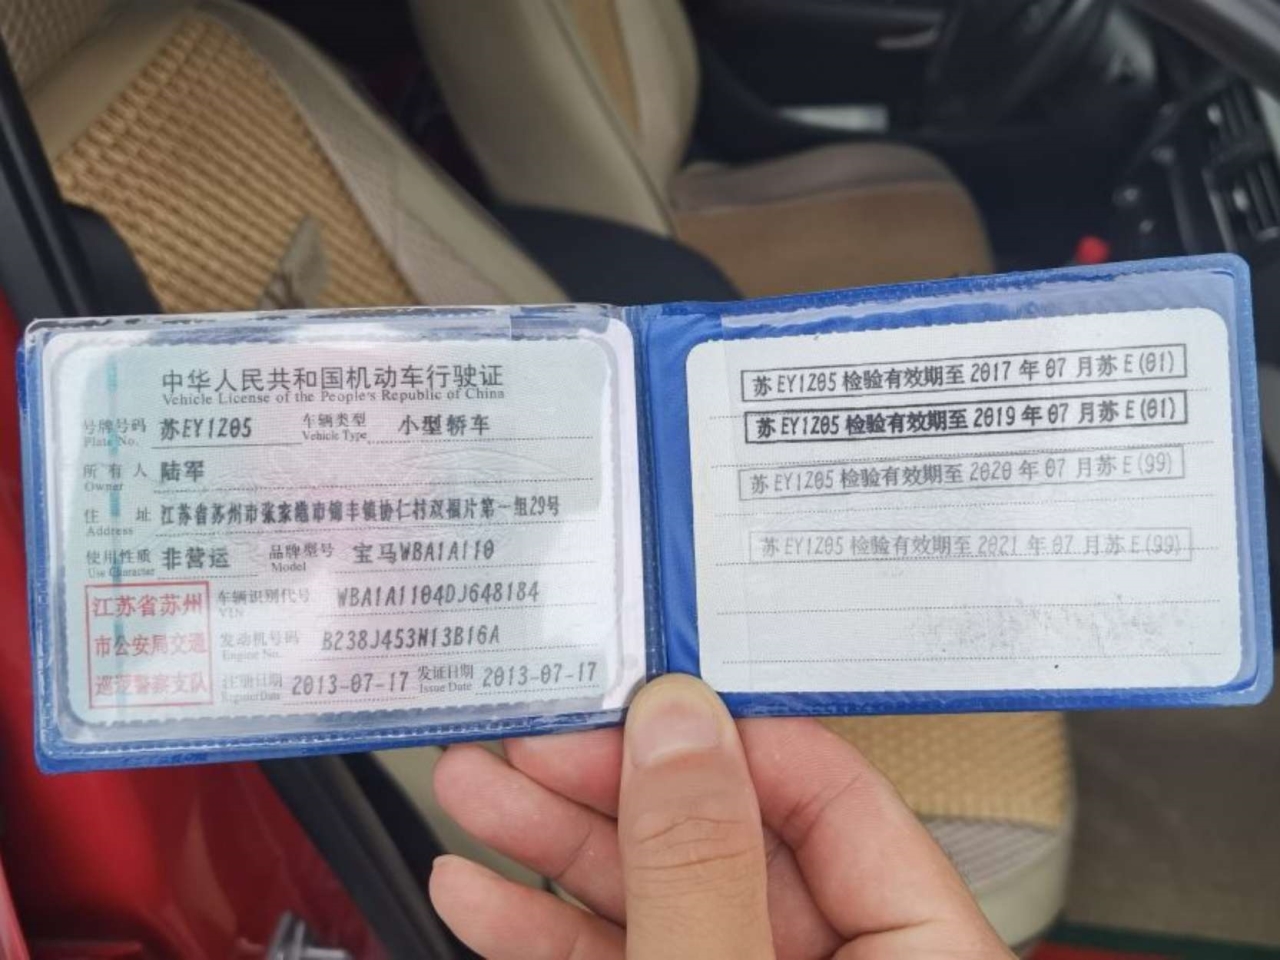 中华人民共和国机动车行驶证
Vehicle License of the People's Republic of China
号牌号码 苏EY1Z05 车辆类型 小型轿车
Plate No. Vehicle Type
所有人 陆军
Owner
住址 江苏省苏州市张家港市锦丰镇协仁村双福片第一组29号
Address
使用性质 非营运 品牌型号 宝马WBA1A110
Use Character Model
江苏省苏州 车辆识别代号 WBA1A1104DJ648184
VIN
市公安局交通 发动机号码 B238J453N13B16A
Engine No.
巡逻警察支队 注册日期 2013-07-17 发证日期 2013-07-17
Register Date Issue Date
苏EY1Z05检验有效期至2017年07月苏E(01)
苏EY1Z05检验有效期至2019年07月苏E(01)
苏EY1Z05检验有效期至2020年07月苏E(99)
苏EY1Z05检验有效期至2021年07月苏E(99)